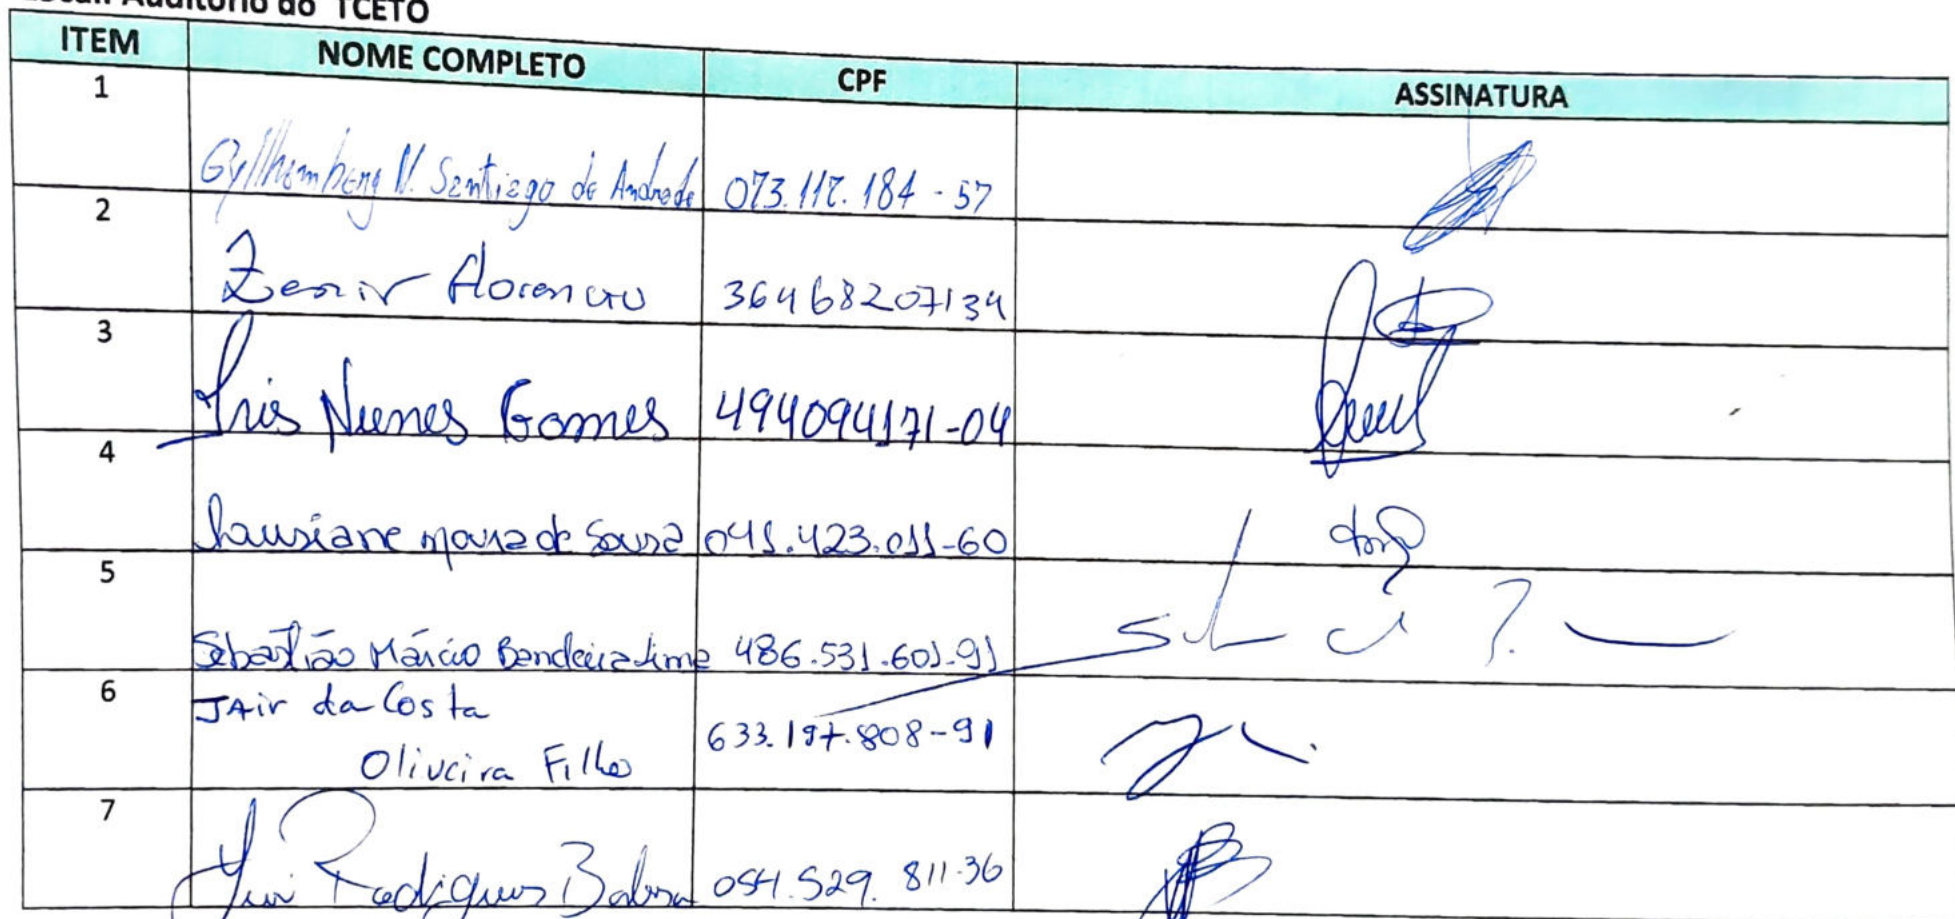 Auditório do TCETO
ITEM NOME COMPLETO CPF ASSINATURA
1 Gyllhemberg N. Santiago de Andrade 073.117.184-57
2 Zenir Florencio 36468207134
3 Iris Nunes Gomes 494094171-04
4 Lausiane de Sousa 041.423.011-60
5 Sebastião Márcio Bandeira Lima 486.531.601-91
6 JAir da Costa
Oliveira Filho 633.197.808-91
7 Yuri Rodrigues Barbosa 054.529.811-36